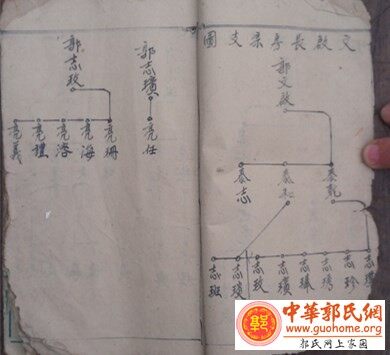 文啟長房支圖
郭文啟
泰乾
泰和
泰志
志珍
志
志
志璜
志玫
志
志班
郭志璜
亮任
郭志玫
亮珊
亮海
亮洛
亮禮
亮義
中華郭氏網
www.guohome.org
郭氏网上家園